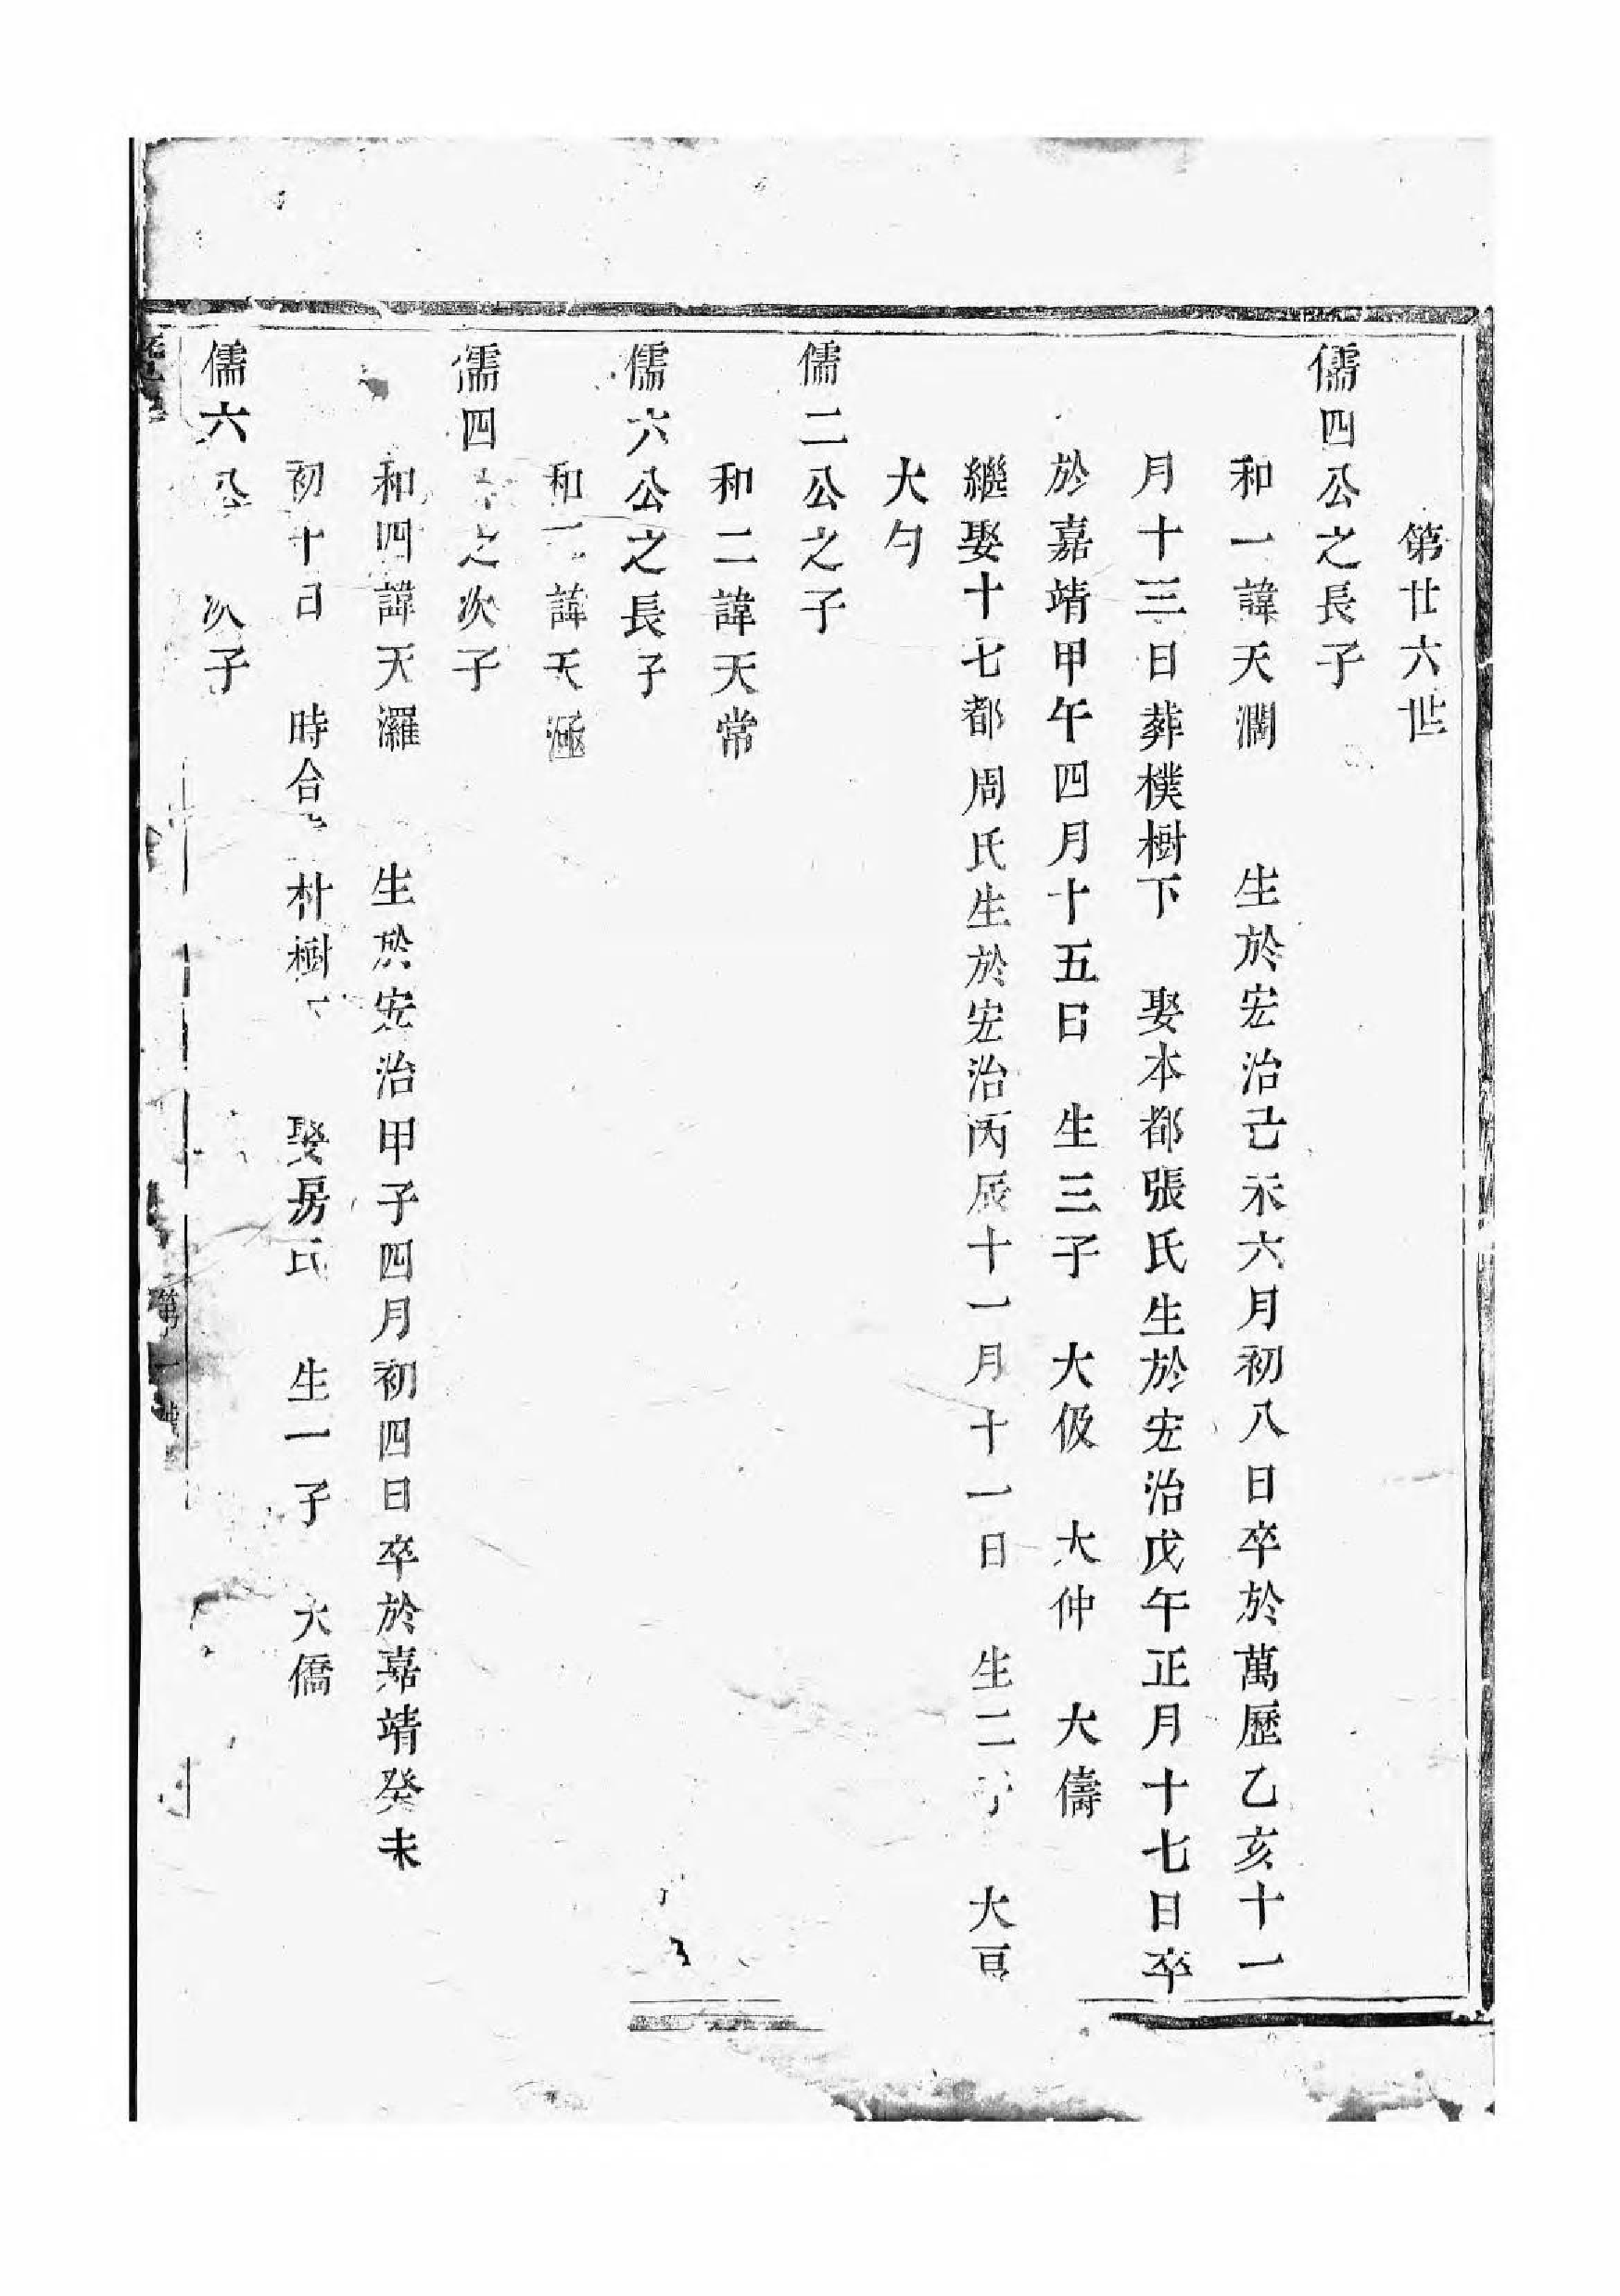 第廿六世
儒四公之長子
和一諱天瀾 生於宏治己未六月初八日卒於萬歷乙亥十一
月十三日葬樸樹下 娶本都張氏生於宏治戊午正月十七日卒
於嘉靖甲午四月十五日 生三子 大伋 大仲 大儔
繼娶十七都周氏生於宏治丙辰十一月十一日 生二子 大
大勻
儒二公之子
和二諱天常
儒六公之長子
和 諱天
儒四 之次子
和四諱天灑 生於宏治甲子四月初四日卒於嘉靖癸未
初十日 時合 朴樹 娶房氏 生一子 大僑
儒六公 次子
第一